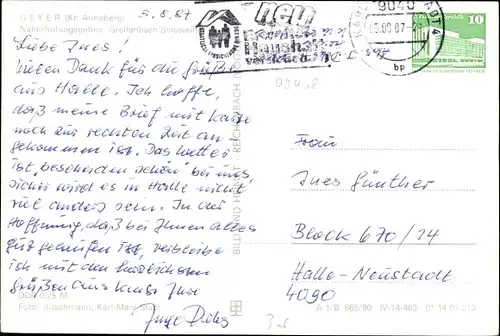 GEYER (Kr. Annaberg)
Naherholungsgebiet Greifenbach-Stauweiher
5.8.87
Liebe Ines!
vielen Dank für die Grüße
aus Halle. Ich hoffe,
daß meine Brief mit Karte
noch zur rechten Zeit an
gekommen ist. Das Wetter
ist bescheiden schön bei uns,
sicher wird es in Halle nicht
viel anders sein. In der
Hoffnung, daß bei Ihnen alles
gut gelaufen ist, verbleibe
ich mit den herzlichsten
Grüßen aus
DDR 0,25 M
Foto: Boschmann, Karl-Marx-Stadt
BILD UND HEIMAT REICHENBACH
neu
Haushalt
9040
05.08.87
bp
DDR
10
Frau
Ines Günther
Block 670/14
Halle-Neustadt
4090
A 1/B 865/80 IV-14-483 01 14 01 213